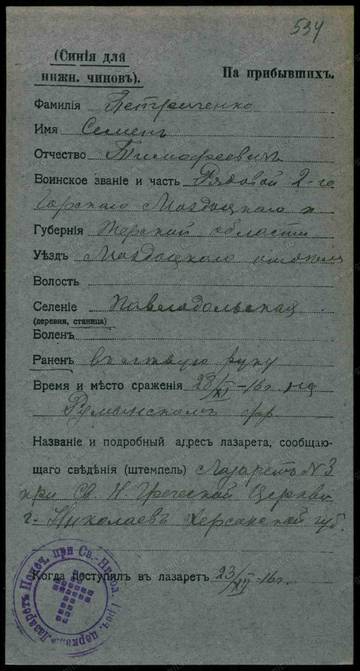 534
(Синія для
нижн. чиновъ).
На прибывшихъ.
Фамилія Петриченко
Имя Семенъ
Отчество Тимофеевичъ
Воинское званіе и часть Рядовой 2-го
Горского Моздоцкаго п
Губернія Терской области
Уѣздъ Моздоцкаго отдела
Волость
Селеніе Павлодольская
(деревня, станица)
Боленъ
Раненъ въ лѣвую руку
Время и мѣсто сраженія 23/XI-16г. на
Румынскомъ фр.
Названіе и подробный адресъ лазарета, сообщаю-
щаго свѣдѣнія (штемпель) Лазаретъ №3
при Св. Н. Греческой Церкви
г. Николаевъ Херсонской губ.
Когда поступилъ въ лазаретъ 23/XII-16г.
Лазаретъ Попеч. при Св.-Никол. Греч. церкви